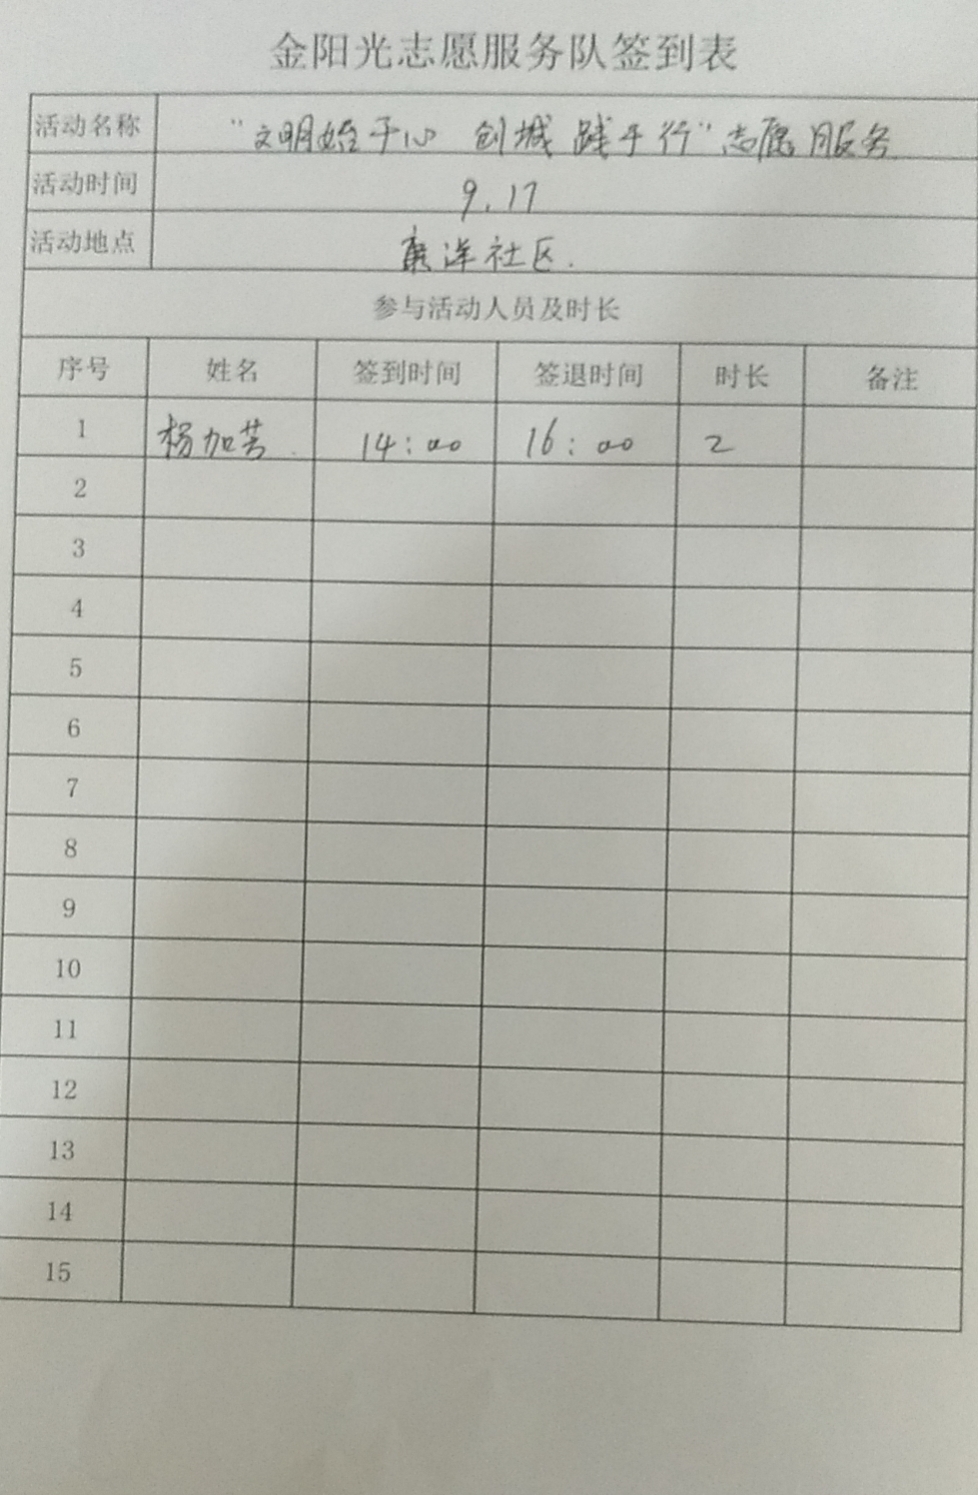 金阳光志愿服务队签到表
活动名称 "文明始于心 创城践于行"志愿服务
活动时间 9.17
活动地点 洋社区.
参与活动人员及时长
序号 姓名 签到时间 签退时间 时长 备注
1 杨加芳 14:00 16:00 2
2
3
4
5
6
7
8
9
10
11
12
13
14
15